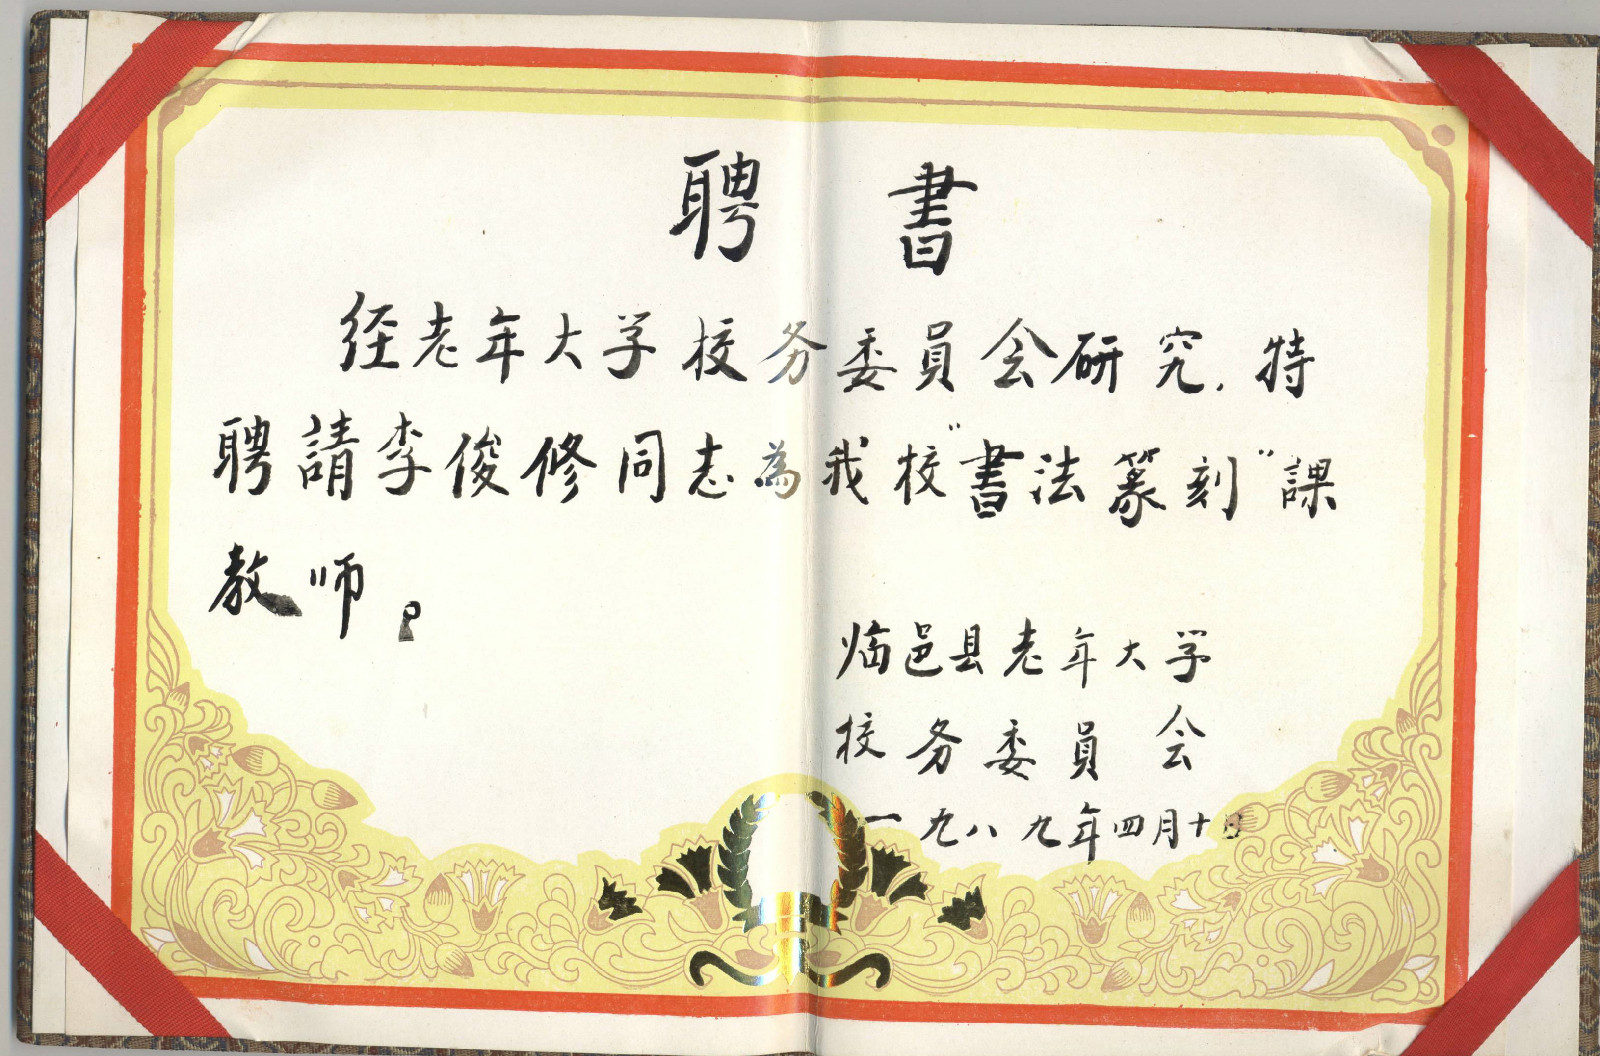 聘書
经老年大学校务委員会研究,特
聘請李俊修同志為我校"書法篆刻"課
教师。
临邑县老年大学
校务委員会
一九八九年四月十日